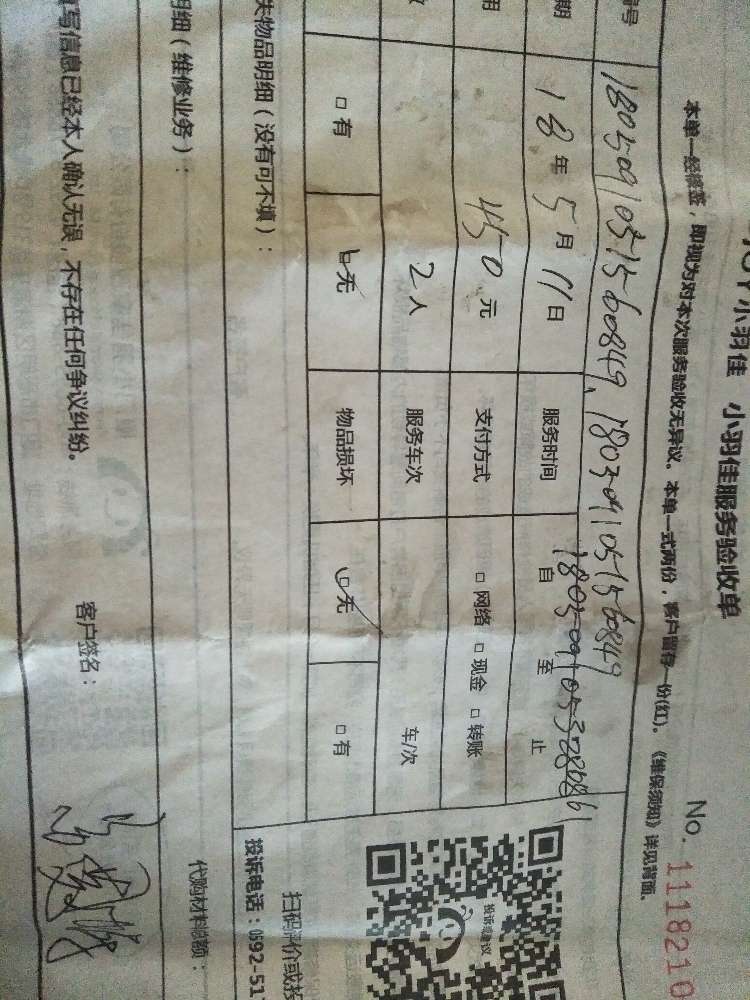 小羽佳 小羽佳服务验收单
No. 1118210
本单一经签签，即视为对本次服务验收无异议。本单一式两份，客户留存一份(红)。《维保须知》详见背面。
编号 180509105715600849、180509105715600849
180509105328080861
期 18年5月11日 服务时间 自 至 止
用 450元 支付方式 □网络 □现金 □转账
2人 服务车次 车/次
□有 □无 物品损坏 □无 □有
失物品明细（没有可不填）：
扫码评价或投
投诉电话：0592-51
投诉或建议
明细（维修业务）：
代购材料总额：
填写信息已经本人确认无误，不存在任何争议纠纷。
客户签名：